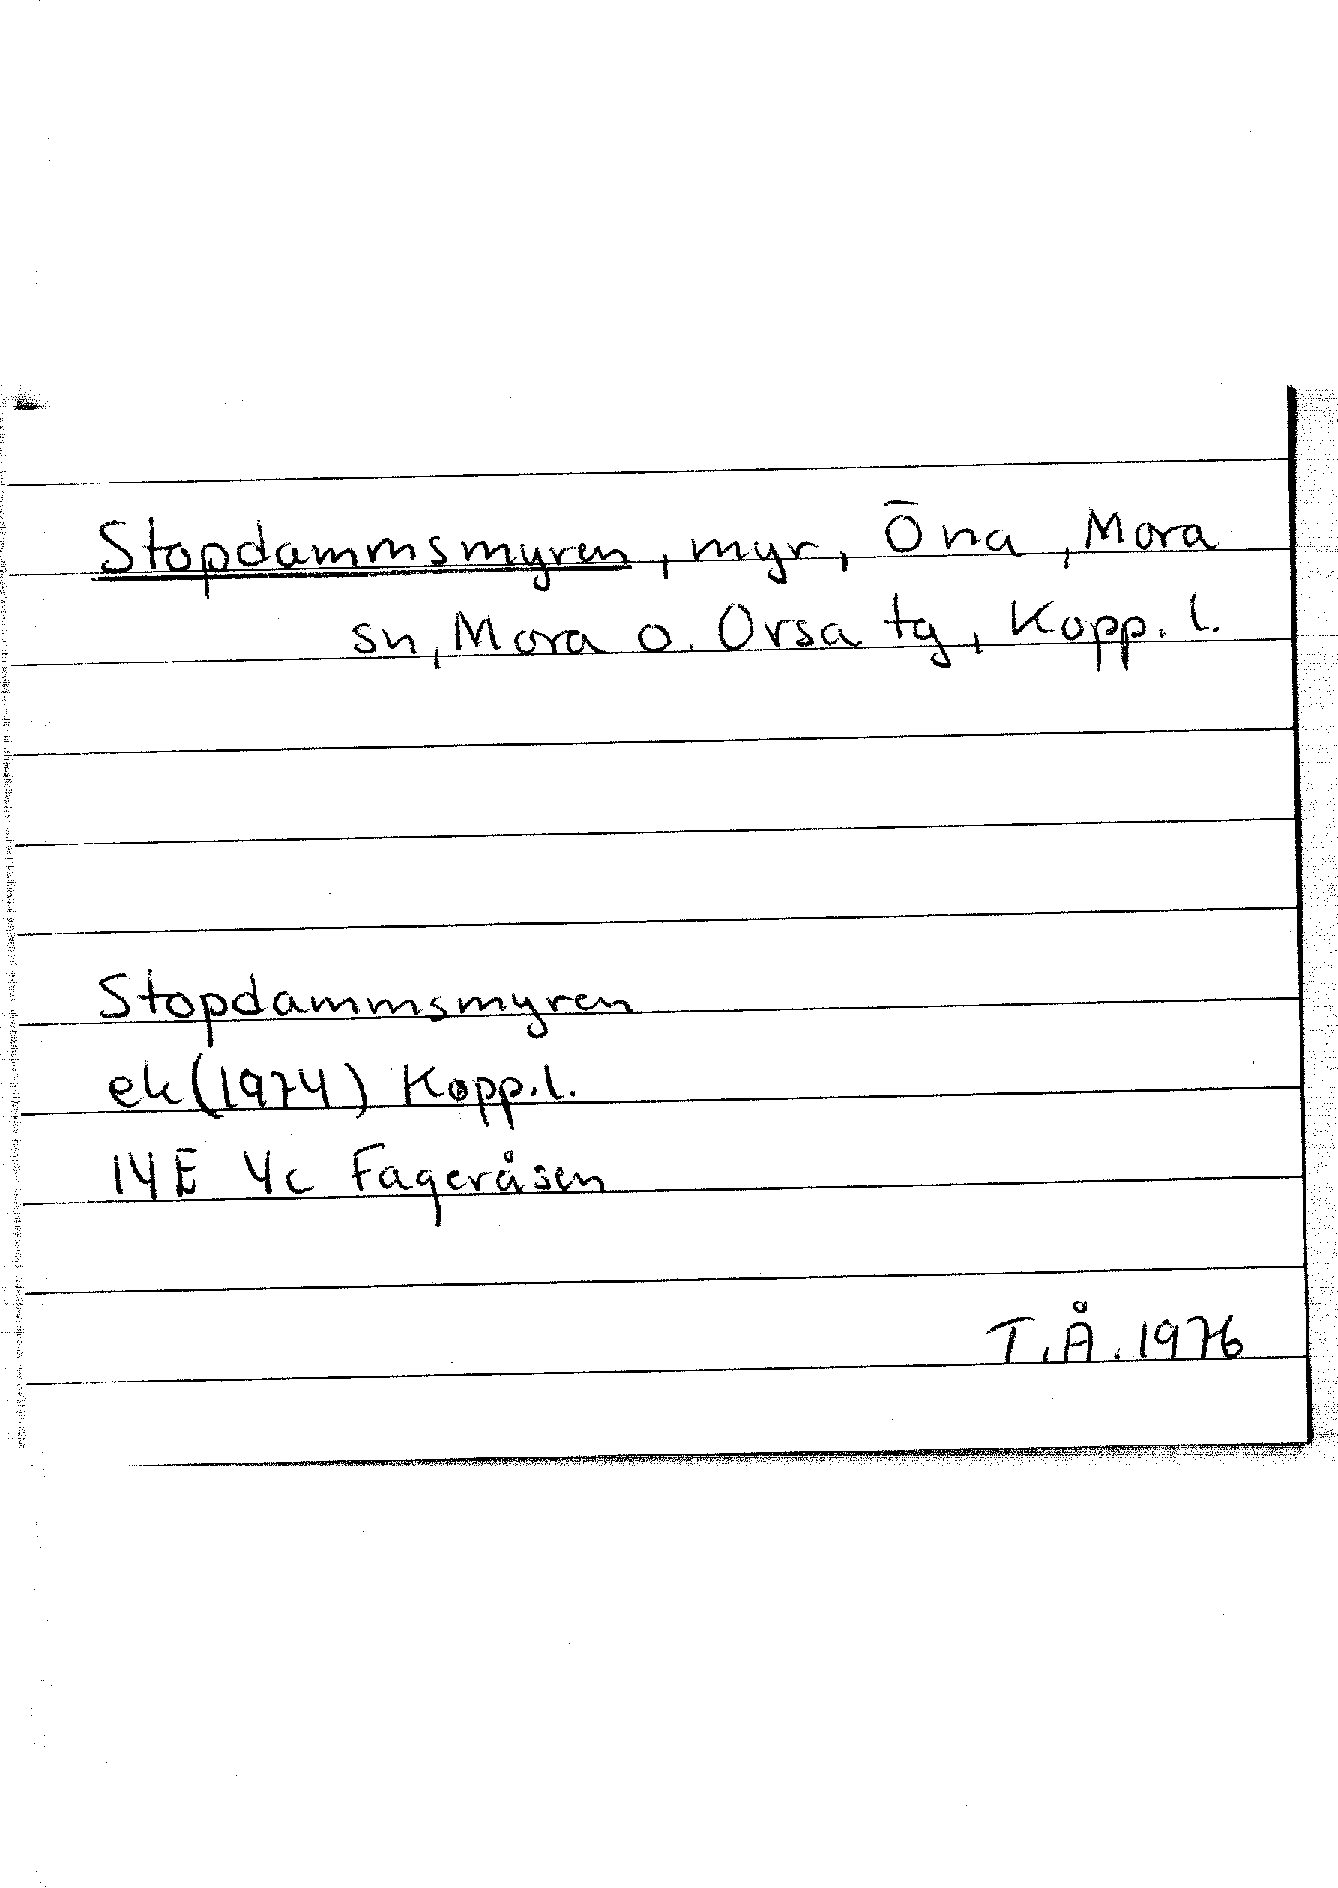 Stopdammsmyren, myr, Öna, Mora
sn, Mora o. Orsa tg, Kopp. l.
Stopdammsmyren
ek (1974) Kopp. l.
14E 4c Fageråsen
T.Å. 1976